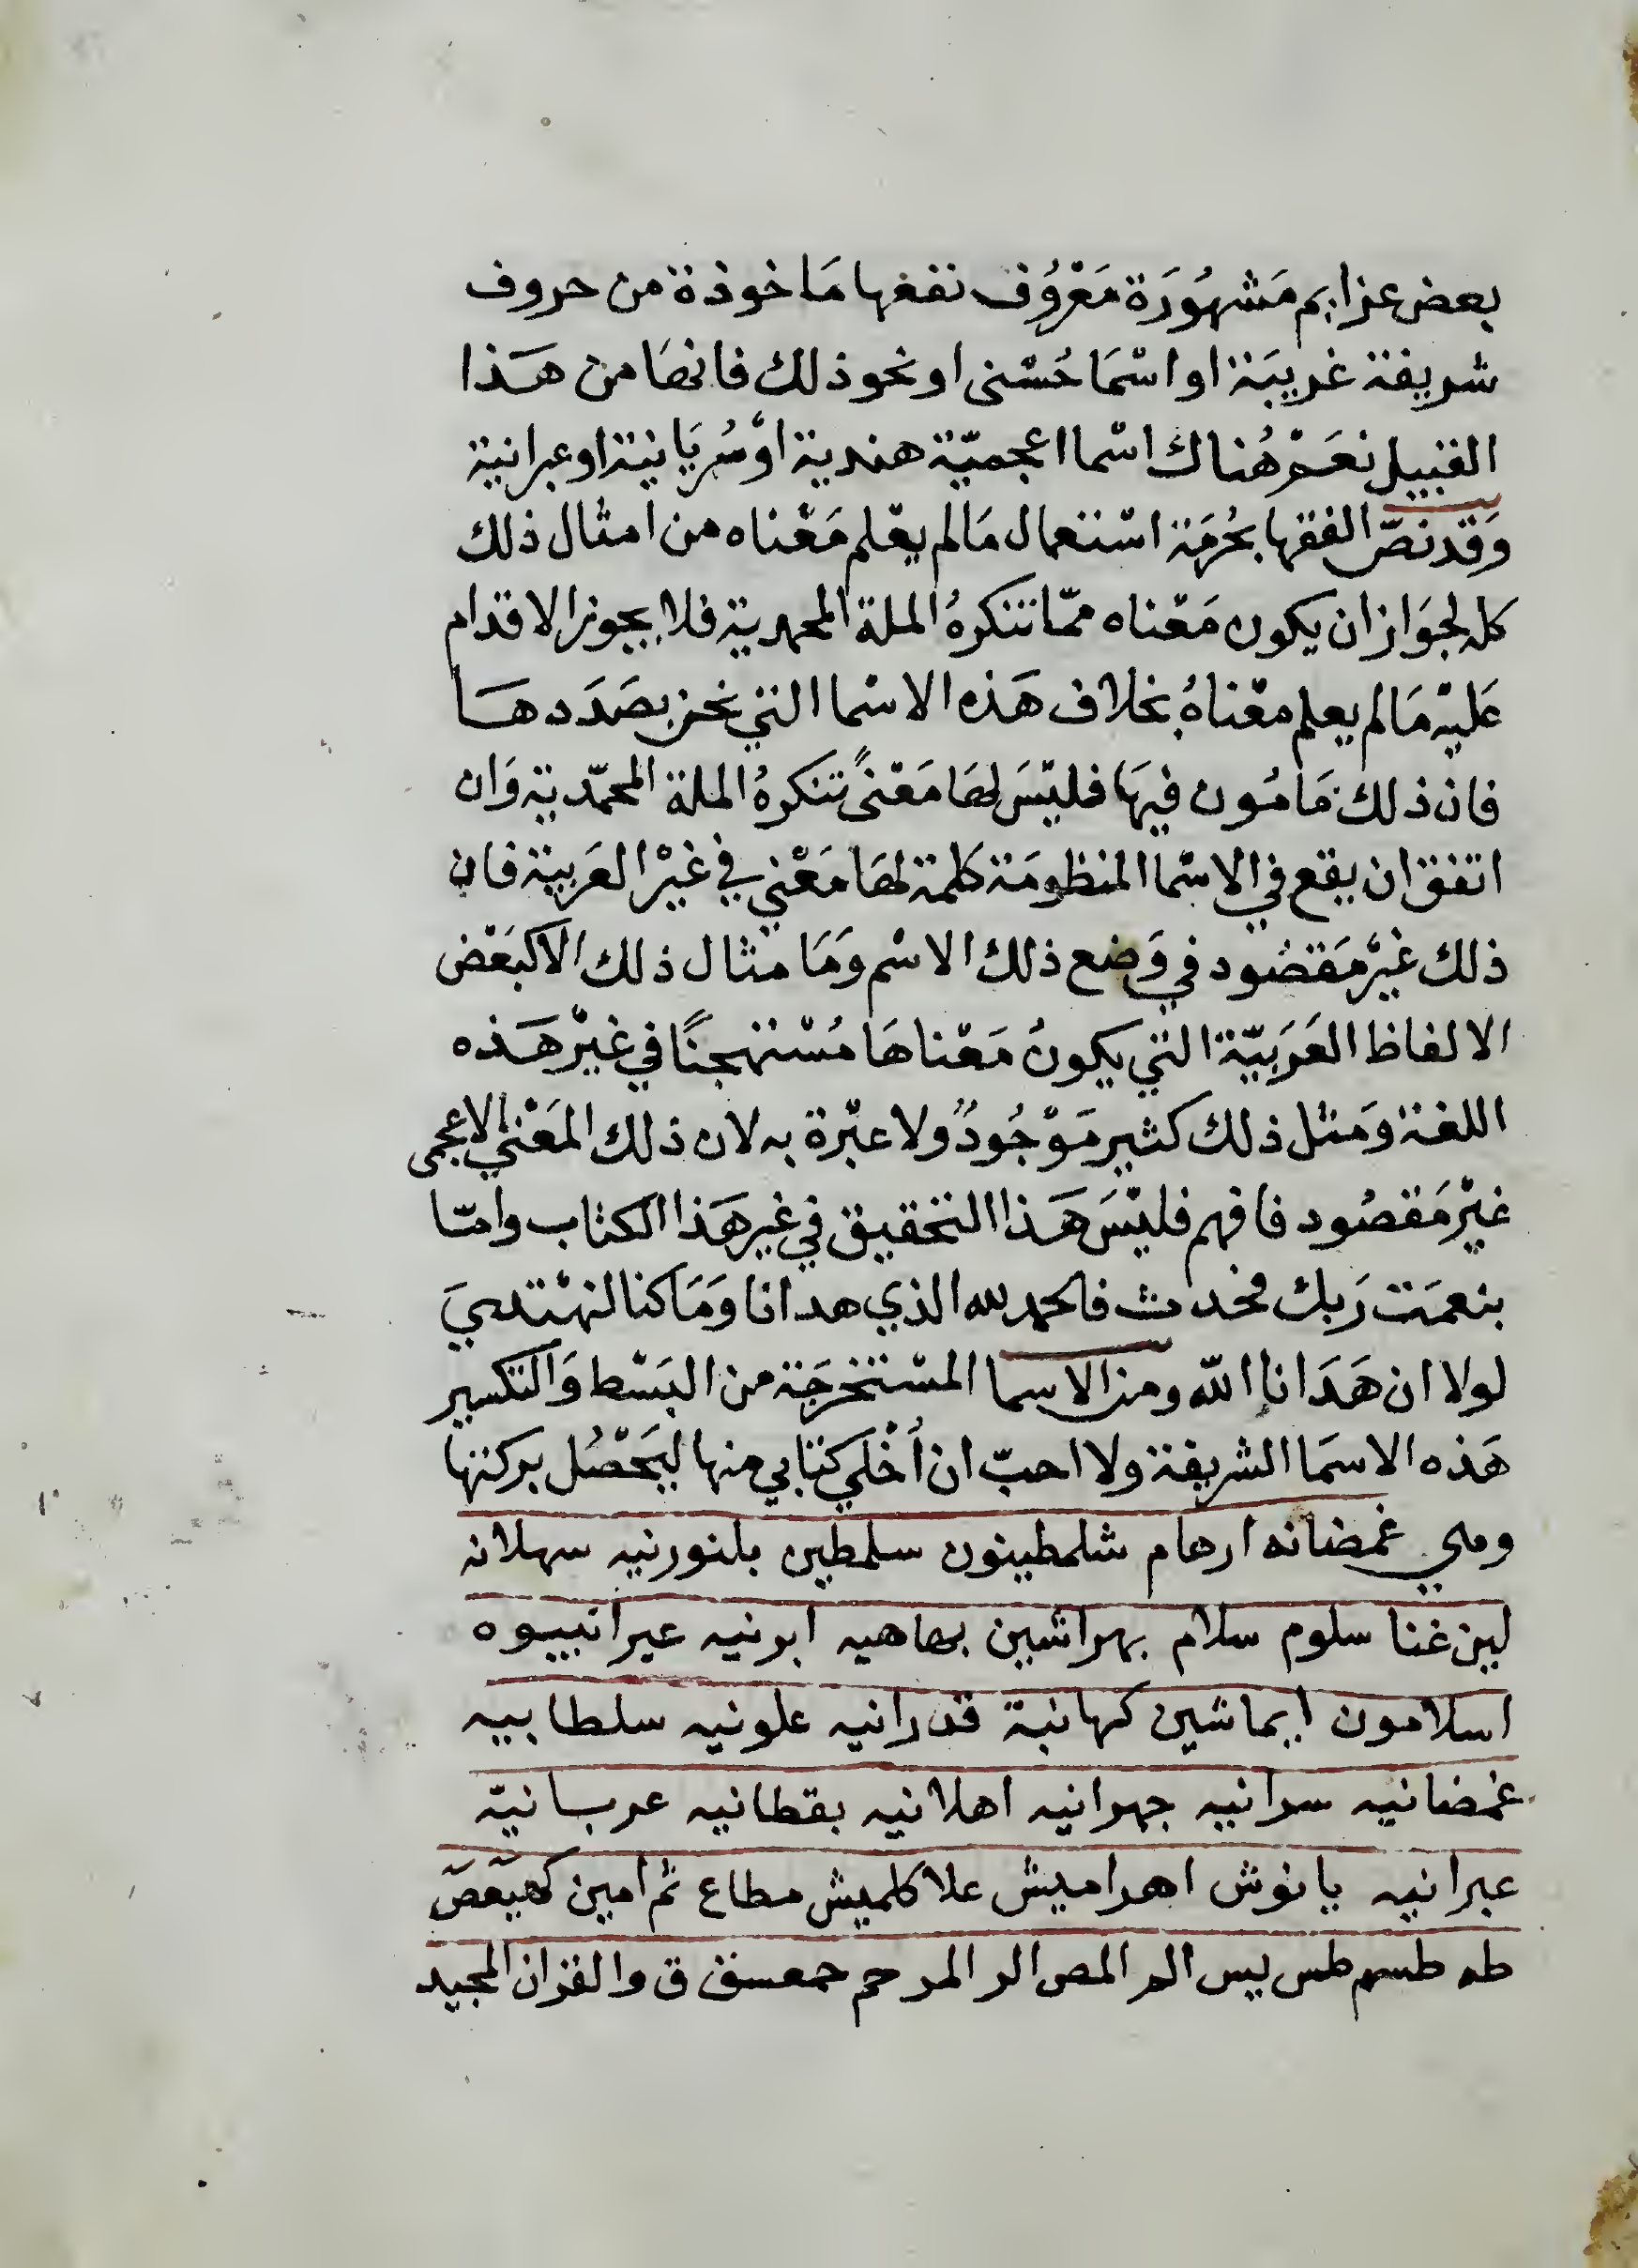 بعض عزايم مَشهُورَة مَعْرُوف نفعها مَاخوذة من حروف
شريفة غريبَة او اسْمَا حُسْنى او نحو ذلك فانهَا من هَذا
القبيل نعَمْ هُناك اسْما اعجميّة هندية اوْ سُريَانية او عبرانية
وَقد نصّ الفقها بحُرمَة اسْتعمال مَالم يعْلم مَعْناه من امثال ذلك
كله لجوَاز ان يكون مَعْناه ممّا تنكرهُ الملة المحمدية فلا يجوز الاقدام
عَليْه مَالم يعلم معْناهُ بخلاف هَذه الاسْما التي نحن بصَدَدهَا
فان ذلك مَامُون فيهَا فليْسَ لهَا مَعْنىً تنكرهُ الملة المحمّدية وَان
اتفق ان يقع في الاسْما المنظومَة كلمة لهَا مَعْني في غيْر العَربية فان
ذلك غيْر مَقصُود في وَضع ذلك الاسْم وَمَا مثال ذلك الا كبَعْض
الالفاظ العَرَبيّة التي يكونُ مَعْناهَا مُسْتهجنًا في غيْر هَذه
اللغة وَمثل ذلك كثير مَوْجُودٌ ولا عبْرة به لان ذلك المَعْني الاعجمى
غيْر مَقصُود فافهم فليْسَ هَذا التحقيق في غير هَذا الكتاب وامّا
بنعمَت رَبك فحدث فالحمد لله الذي هدانا وَمَا كنا لنهْتديَ
لولا ان هَدَانا اللّه ومن الاسما المسْتخرجَة من البَسْط وَالتكسير
هَذه الاسمَا الشريفة ولا احبّ ان أخْلي كتابي منها ليَحْصُل بركتها
وهي غمضانه ارهام شلمطينون سلمطين بلنورنيه سهلانه
لين غنا سلوم سلام بهراشين بهاهيه ابرنيه عيرانييوه
اسلامون ايماشين كهانية قدرانيه علونيه سلطابيه
غمضانيه سرانيه جهرانيه اهلانيه بقطانيه عربانيّه
عبرانيه يانوش اهراميش علاكلميش مطاع ثم امين كهيعص
طه طسم طس يس الم المص الر المر حم حمعسق ق والقران المجيد